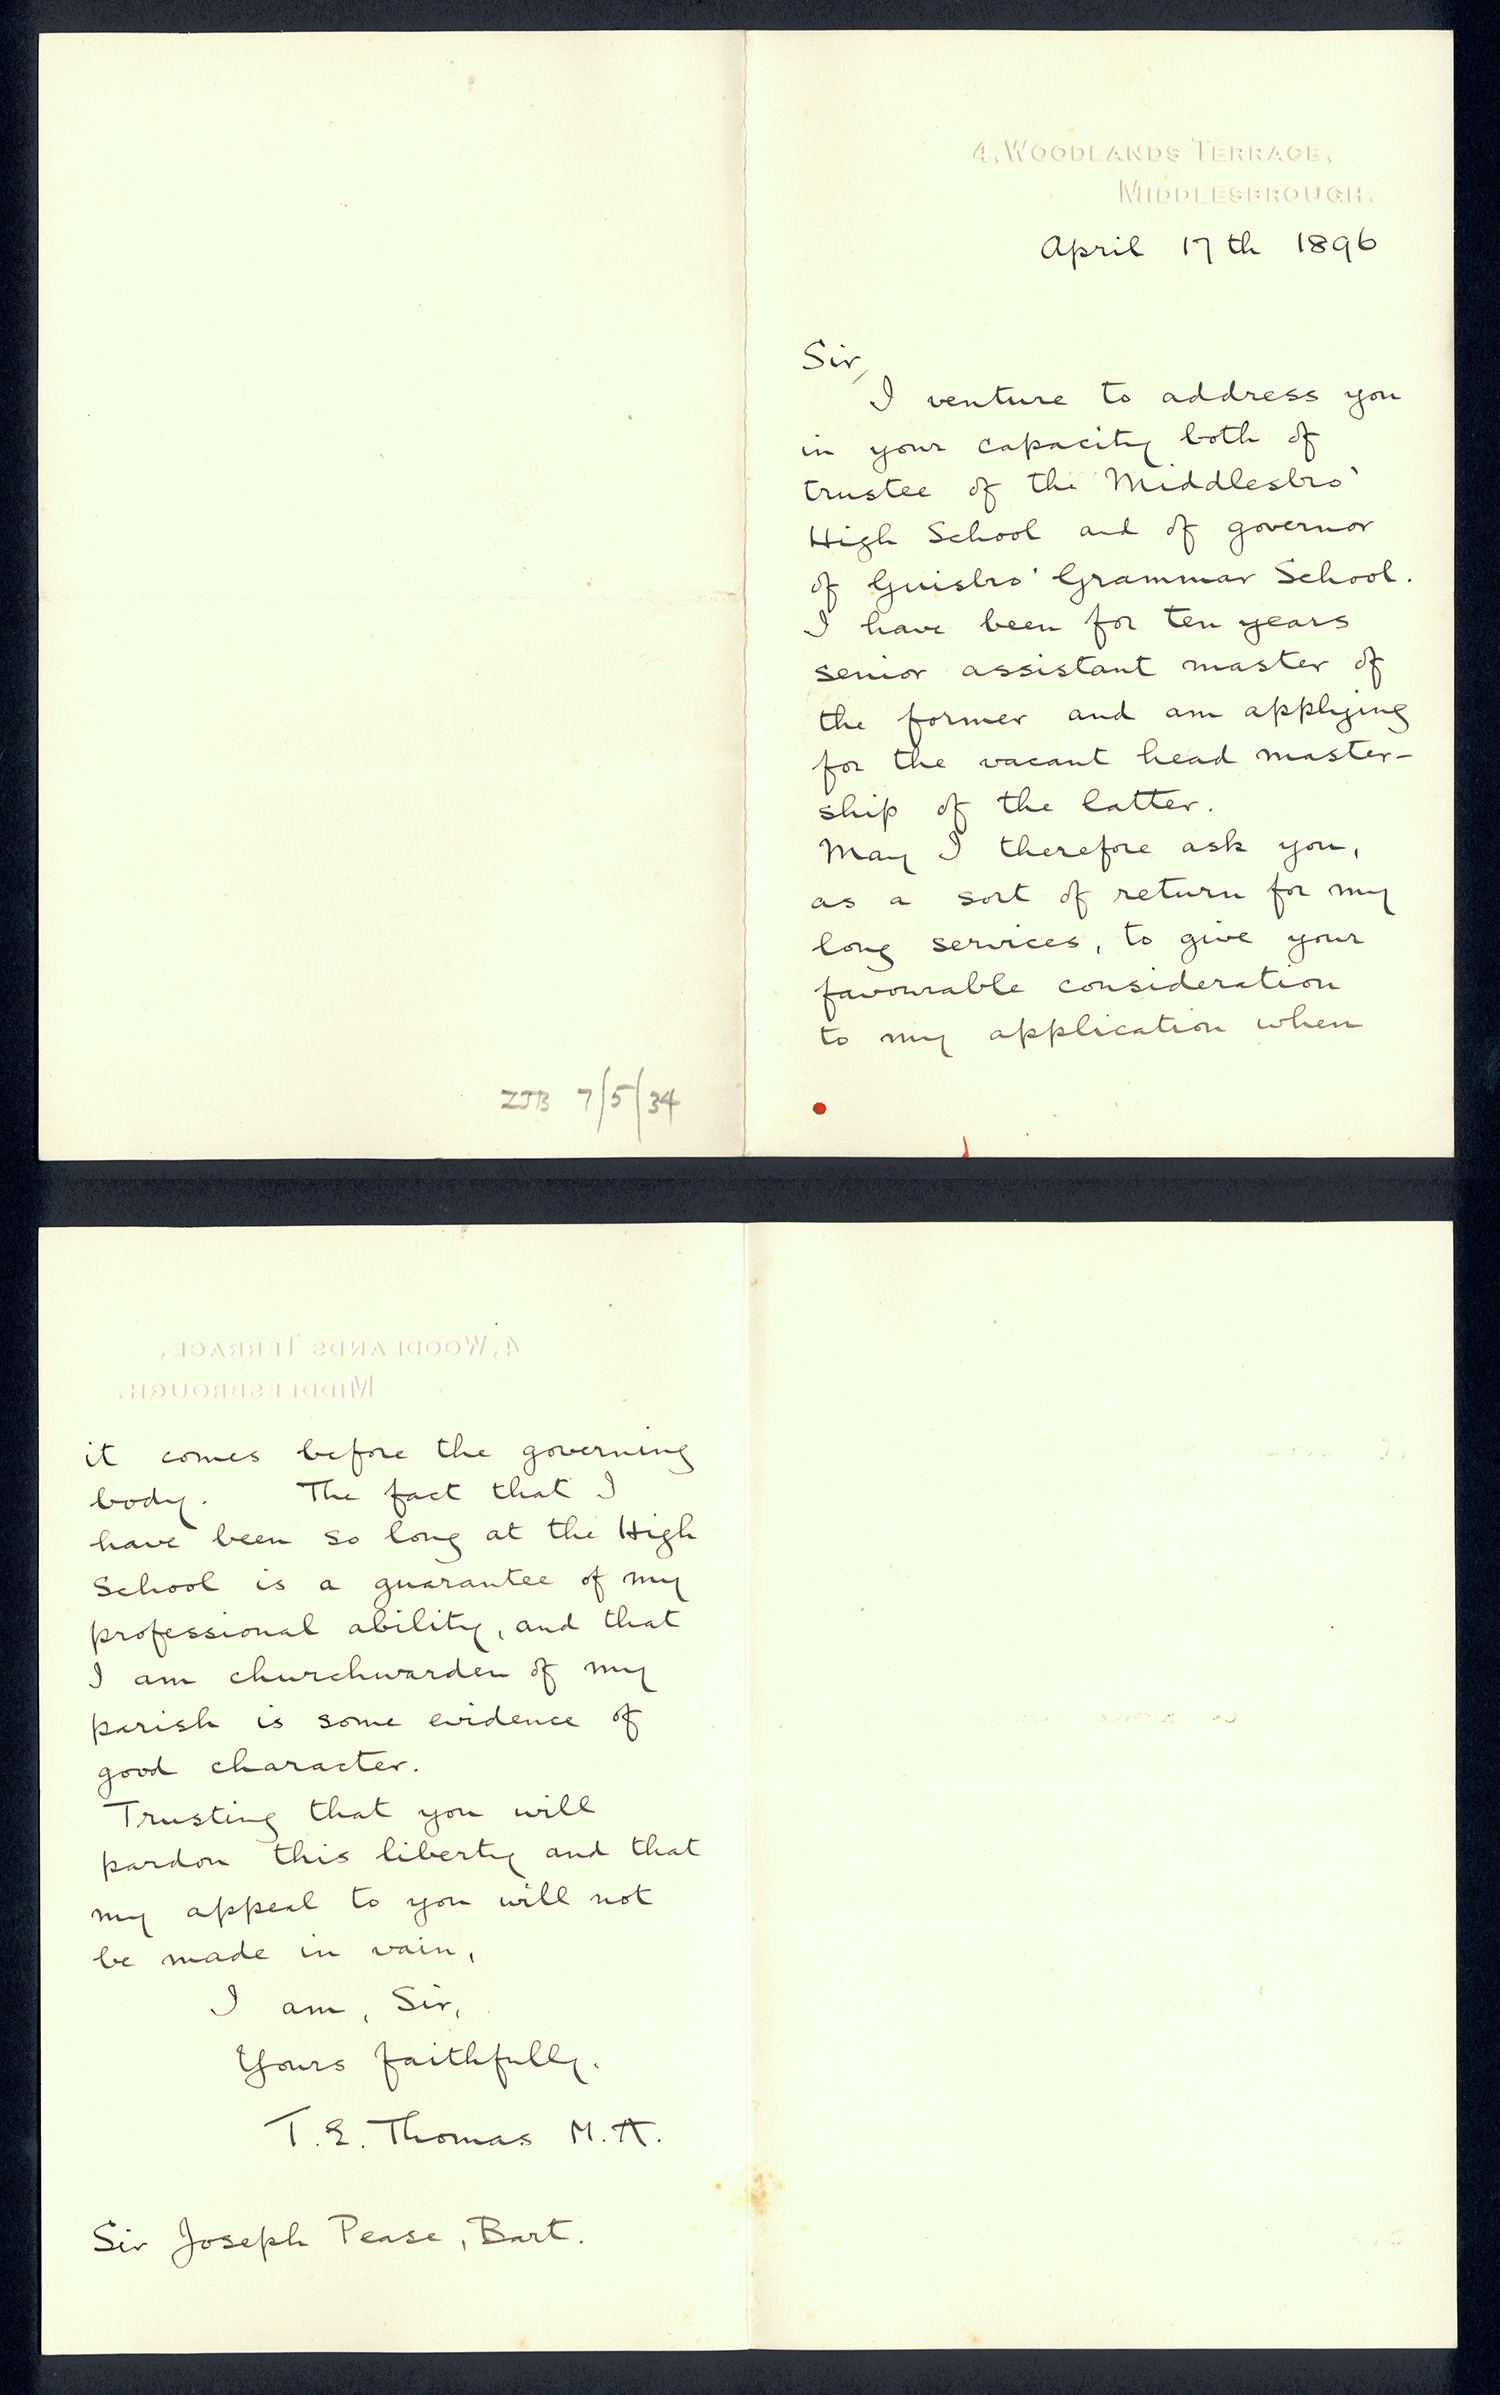 4, WOODLANDS TERRACE,
MIDDLESBROUGH.
April 17th 1896
Sir,
I venture to address you
in your capacity both of
trustee of the Middlesbro'
High School and of governor
of Guisbro' Grammar School.
I have been for ten years
senior assistant master of
the former and am applying
for the vacant head master-
ship of the latter.
May I therefore ask you,
as a sort of return for my
long services, to give your
favourable consideration
to my application when
ZJB 7/5/34
it comes before the governing
body. The fact that I
have been so long at the High
School is a guarantee of my
professional ability, and that
I am churchwarden of my
parish is some evidence of
good character.
Trusting that you will
pardon this liberty and that
my appeal to you will not
be made in vain,
I am, Sir,
Yours faithfully.
T.E. Thomas M.A.
Sir Joseph Pease, Bart.